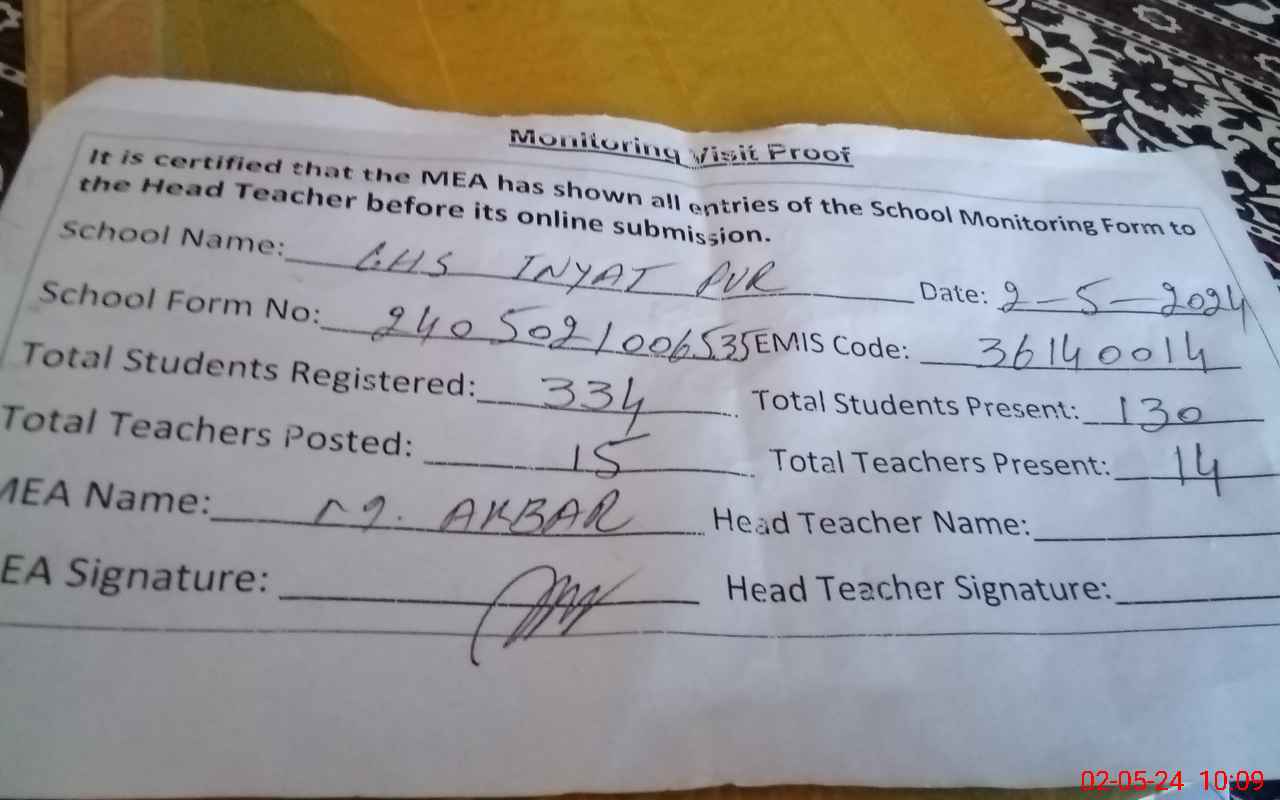 Monitoring Visit Proof
It is certified that the MEA has shown all entries of the School Monitoring Form to
the Head Teacher before its online submission.
School Name: GHS INYAT PUR Date: 2-5-2024
School Form No: 2405021006535 EMIS Code: 36140014
Total Students Registered: 334 Total Students Present: 130
Total Teachers Posted: 15 Total Teachers Present: 14
MEA Name: M. AKBAR Head Teacher Name:
EA Signature: Head Teacher Signature:
02-05-24 10:09